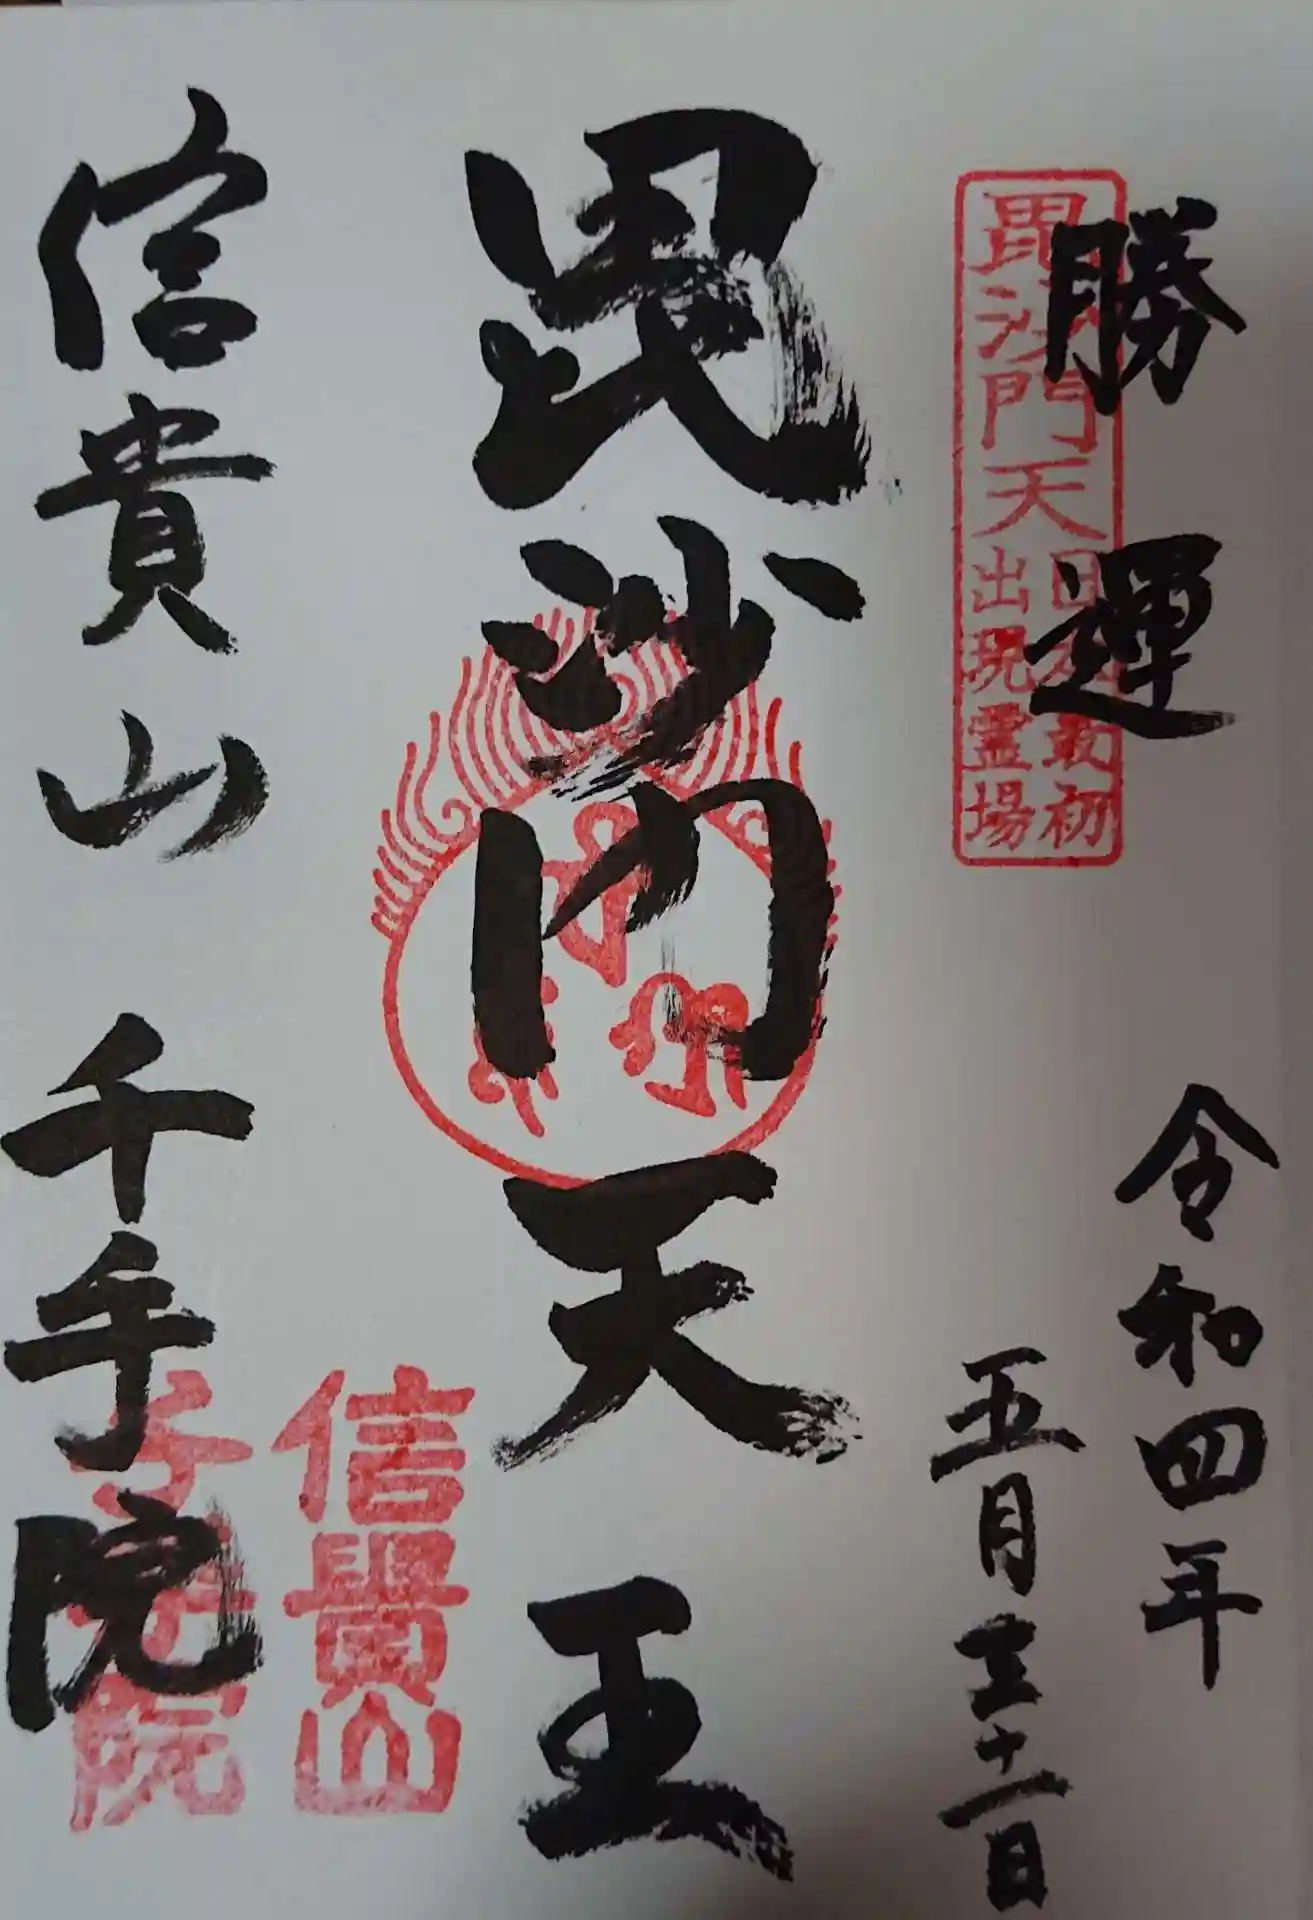 勝運
毘沙門天
日本最初
出現霊場
令和四年
五月三十一日
毘沙門天王
信貴山
千手院
信貴山
千手院